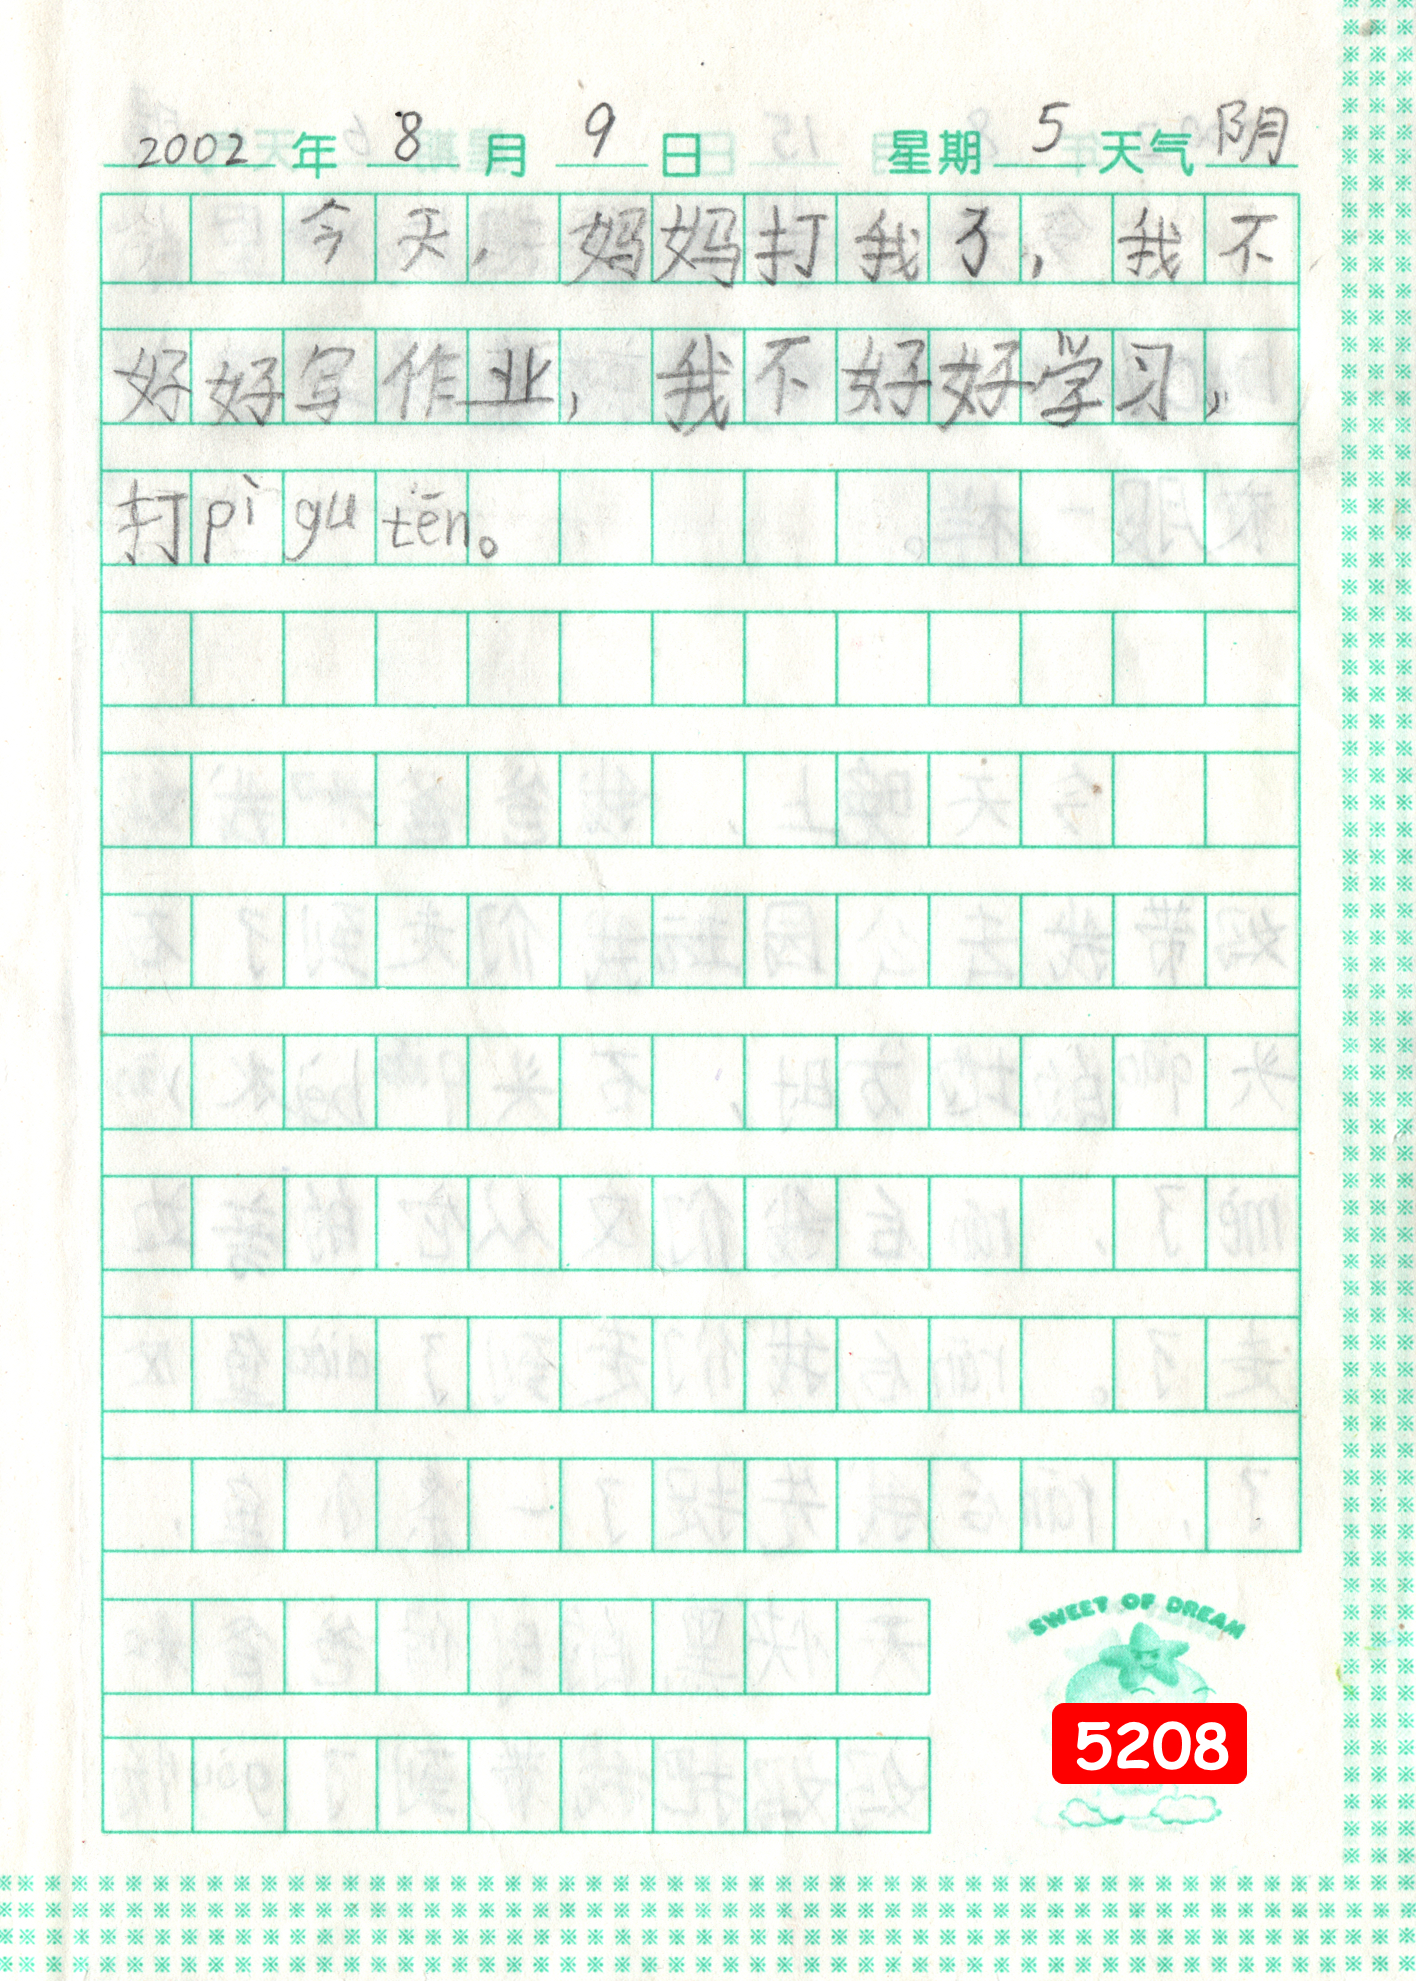 2002年8月9日 星期5天气阴
今天，妈妈打我了，我不
好好写作业，我不好好学习，
打pì gu tēn。
SWEET OF DREAM
5208